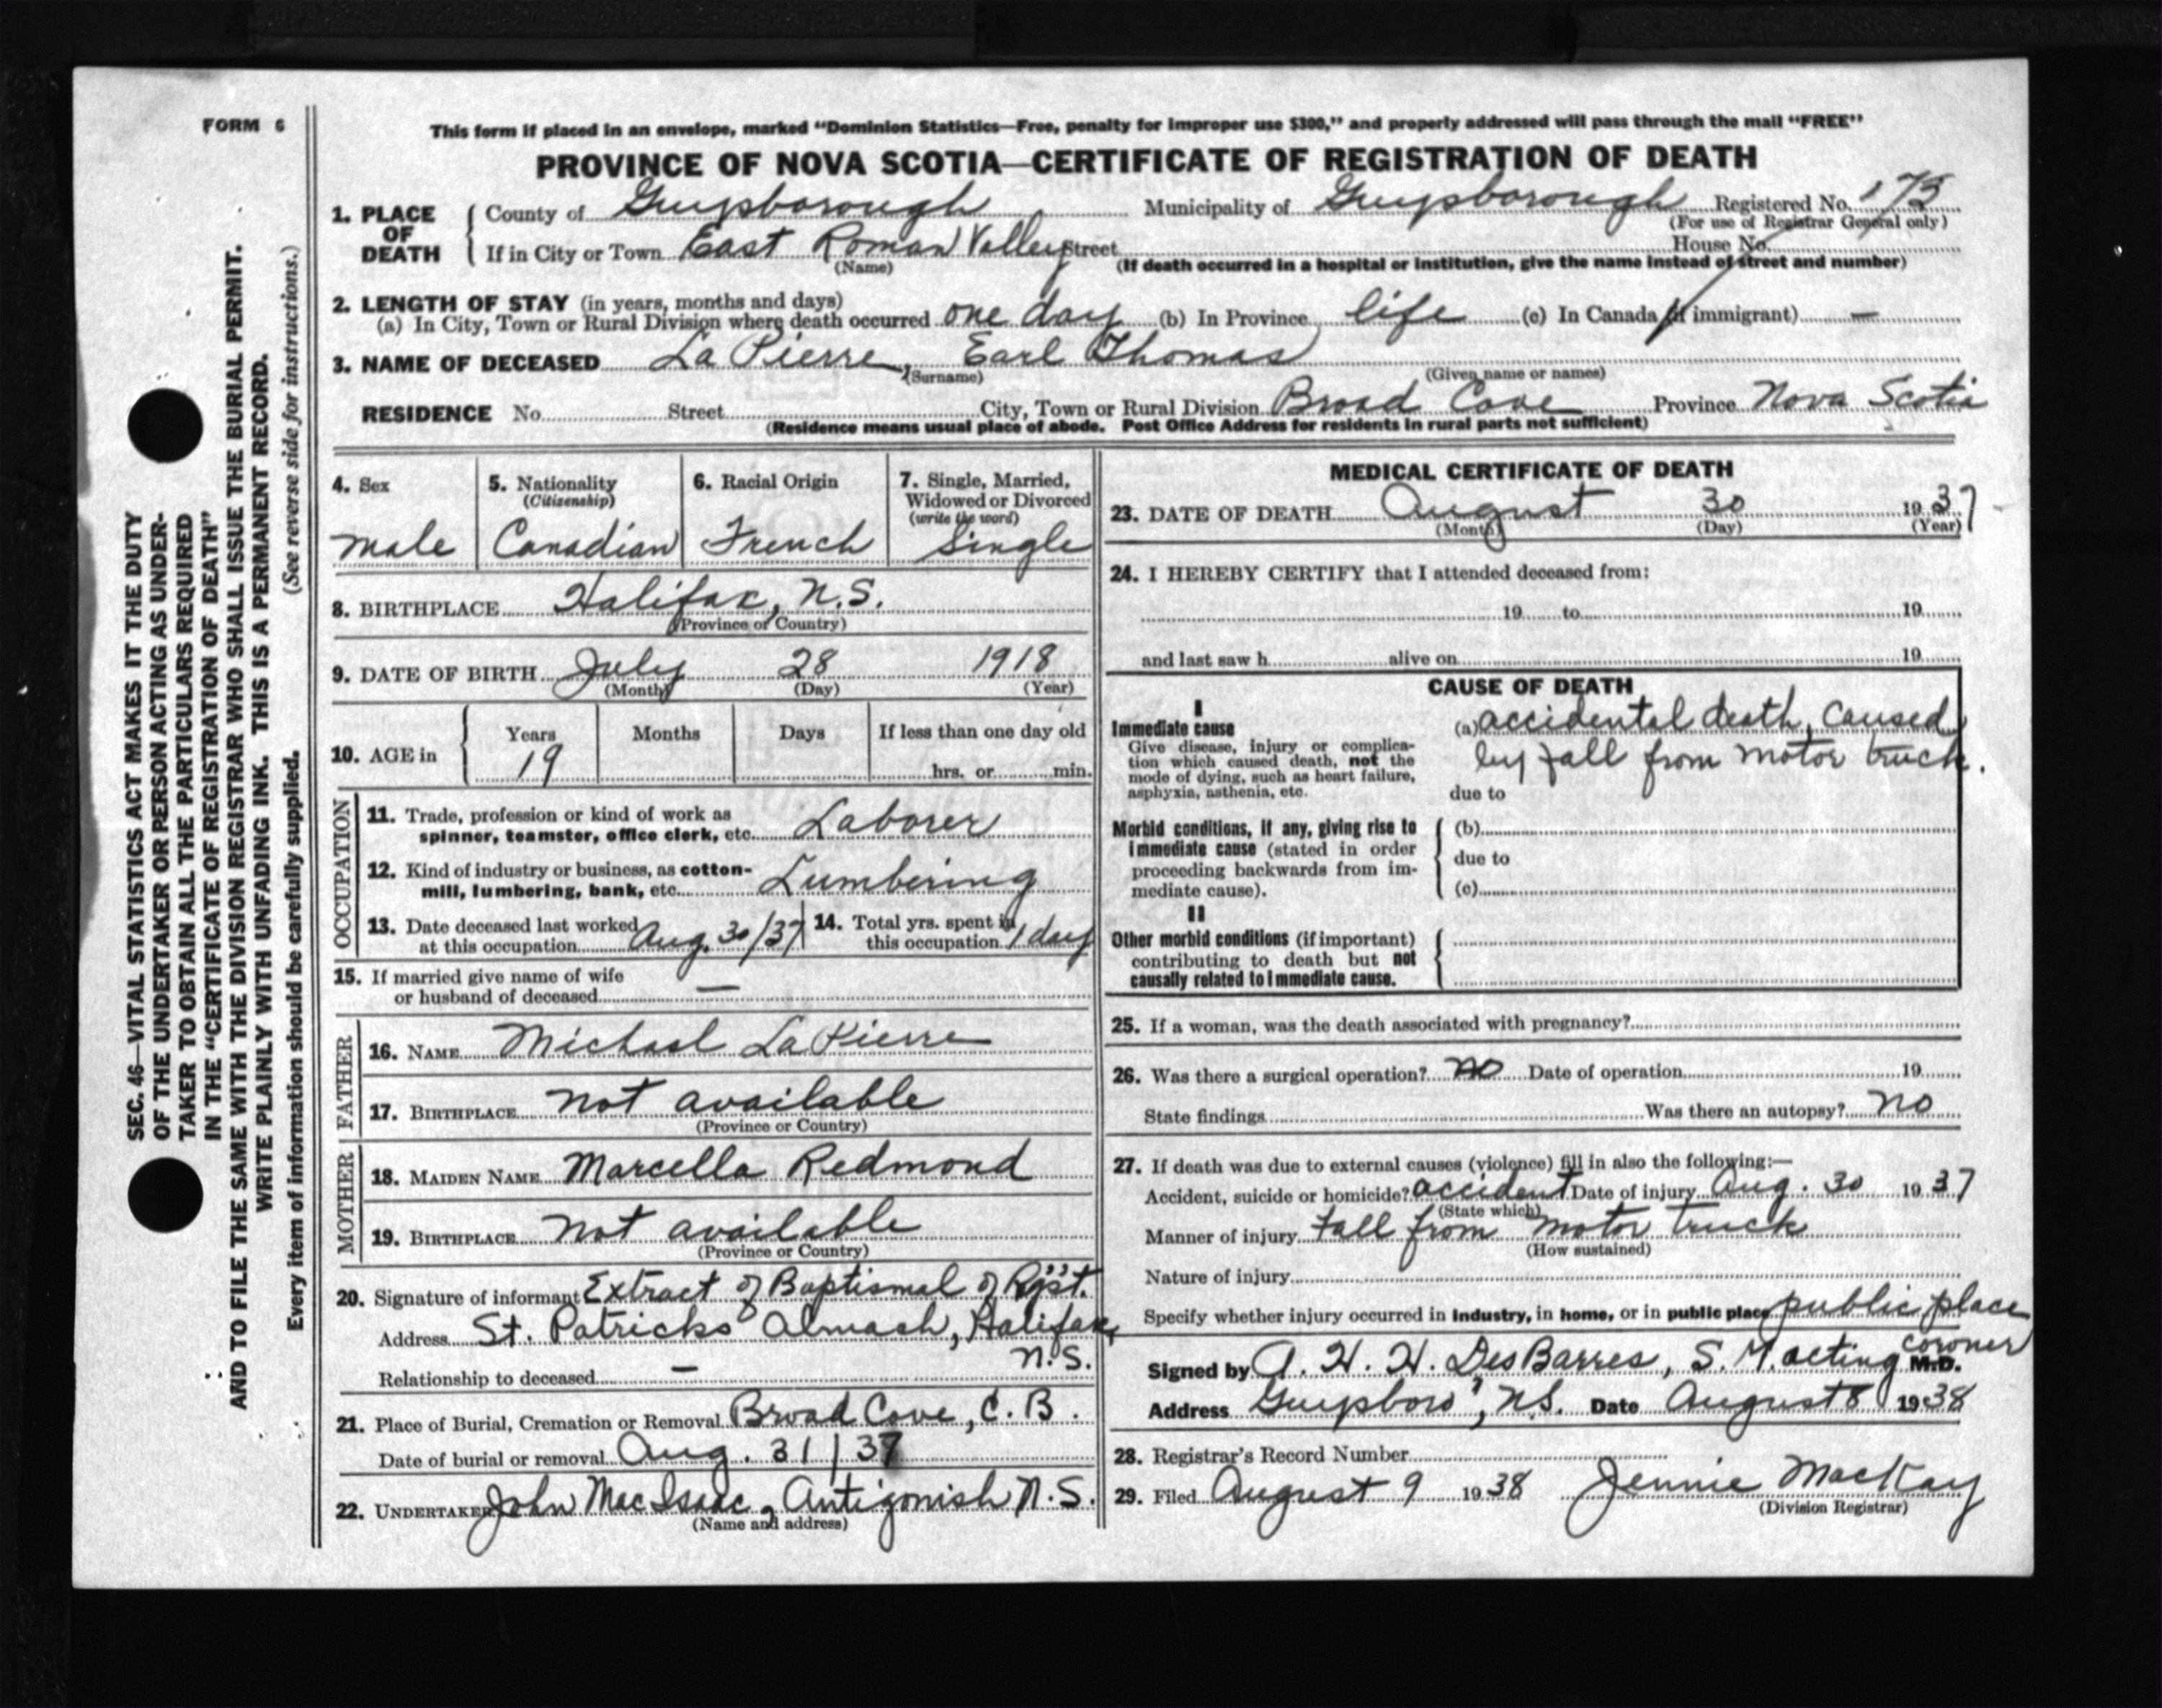 FORM 6
This form if placed in an envelope, marked "Dominion Statistics—Free, penalty for improper use $300," and properly addressed will pass through the mail "FREE"
PROVINCE OF NOVA SCOTIA—CERTIFICATE OF REGISTRATION OF DEATH
1. PLACE OF DEATH County of Guysborough Municipality of Guysborough Registered No. 173
(For use of Registrar General only)
If in City or Town East Roman Valley Street House No.
(Name) (If death occurred in a hospital or institution, give the name instead of street and number)
2. LENGTH OF STAY (in years, months and days)
(a) In City, Town or Rural Division where death occurred one day (b) In Province life (c) In Canada (if immigrant) —
3. NAME OF DECEASED La Pierre, Earl Thomas
(Surname) (Given name or names)
RESIDENCE No. Street City, Town or Rural Division Broad Cove Province Nova Scotia
(Residence means usual place of abode. Post Office Address for residents in rural parts not sufficient)
4. Sex 5. Nationality (Citizenship) 6. Racial Origin 7. Single, Married, Widowed or Divorced (write the word)
male Canadian French Single
8. BIRTHPLACE Halifax, N.S.
(Province or Country)
9. DATE OF BIRTH July 28 1918
(Month) (Day) (Year)
10. AGE in Years Months Days If less than one day old
19 hrs. or min.
OCCUPATION
11. Trade, profession or kind of work as
spinner, teamster, office clerk, etc. Laborer
12. Kind of industry or business, as cotton-
mill, lumbering, bank, etc. Lumbering
13. Date deceased last worked at this occupation Aug. 30/37 14. Total yrs. spent in this occupation 1 day
15. If married give name of wife
or husband of deceased —
FATHER
16. NAME Michael La Pierre
17. BIRTHPLACE not available
(Province or Country)
MOTHER
18. MAIDEN NAME Marcella Redmond
19. BIRTHPLACE not available
(Province or Country)
20. Signature of informant Extract of Baptismal of Rgst.
Address St. Patricks Halifax,
N.S.
Relationship to deceased —
21. Place of Burial, Cremation or Removal Broad Cove, C.B.
Date of burial or removal Aug. 31/37
22. UNDERTAKER John MacIsaac, Antigonish N.S.
(Name and address)
MEDICAL CERTIFICATE OF DEATH
23. DATE OF DEATH August 30 1937
(Month) (Day) (Year)
24. I HEREBY CERTIFY that I attended deceased from:
19 to 19
and last saw h alive on 19
CAUSE OF DEATH
I
Immediate cause
Give disease, injury or complica-
tion which caused death, not the
mode of dying, such as heart failure,
asphyxia, asthenia, etc.
(a) accidental death, caused
by fall from motor truck.
due to
Morbid conditions, if any, giving rise to
immediate cause (stated in order
proceeding backwards from im-
mediate cause).
(b)
due to
(c)
II
Other morbid conditions (if important)
contributing to death but not
causally related to immediate cause.
25. If a woman, was the death associated with pregnancy?
26. Was there a surgical operation? no Date of operation 19
State findings Was there an autopsy? no
27. If death was due to external causes (violence) fill in also the following:—
Accident, suicide or homicide? accident Date of injury Aug. 30 1937
(State which)
Manner of injury fall from motor truck
(How sustained)
Nature of injury
Specify whether injury occurred in industry, in home, or in public place public place
Signed by A. H. H. DesBarres, S. M. acting coroner M.D.
Address Guysboro', N.S. Date August 8 1938
28. Registrar's Record Number
29. Filed August 9 1938 Jennie MacKay
(Division Registrar)
SEC. 46—VITAL STATISTICS ACT MAKES IT THE DUTY
OF THE UNDERTAKER OR PERSON ACTING AS UNDER-
TAKER TO OBTAIN ALL THE PARTICULARS REQUIRED
IN THE "CERTIFICATE OF REGISTRATION OF DEATH"
AND TO FILE THE SAME WITH THE DIVISION REGISTRAR WHO SHALL ISSUE THE BURIAL PERMIT.
WRITE PLAINLY WITH UNFADING INK. THIS IS A PERMANENT RECORD.
Every item of information should be carefully supplied. (See reverse side for instructions.)